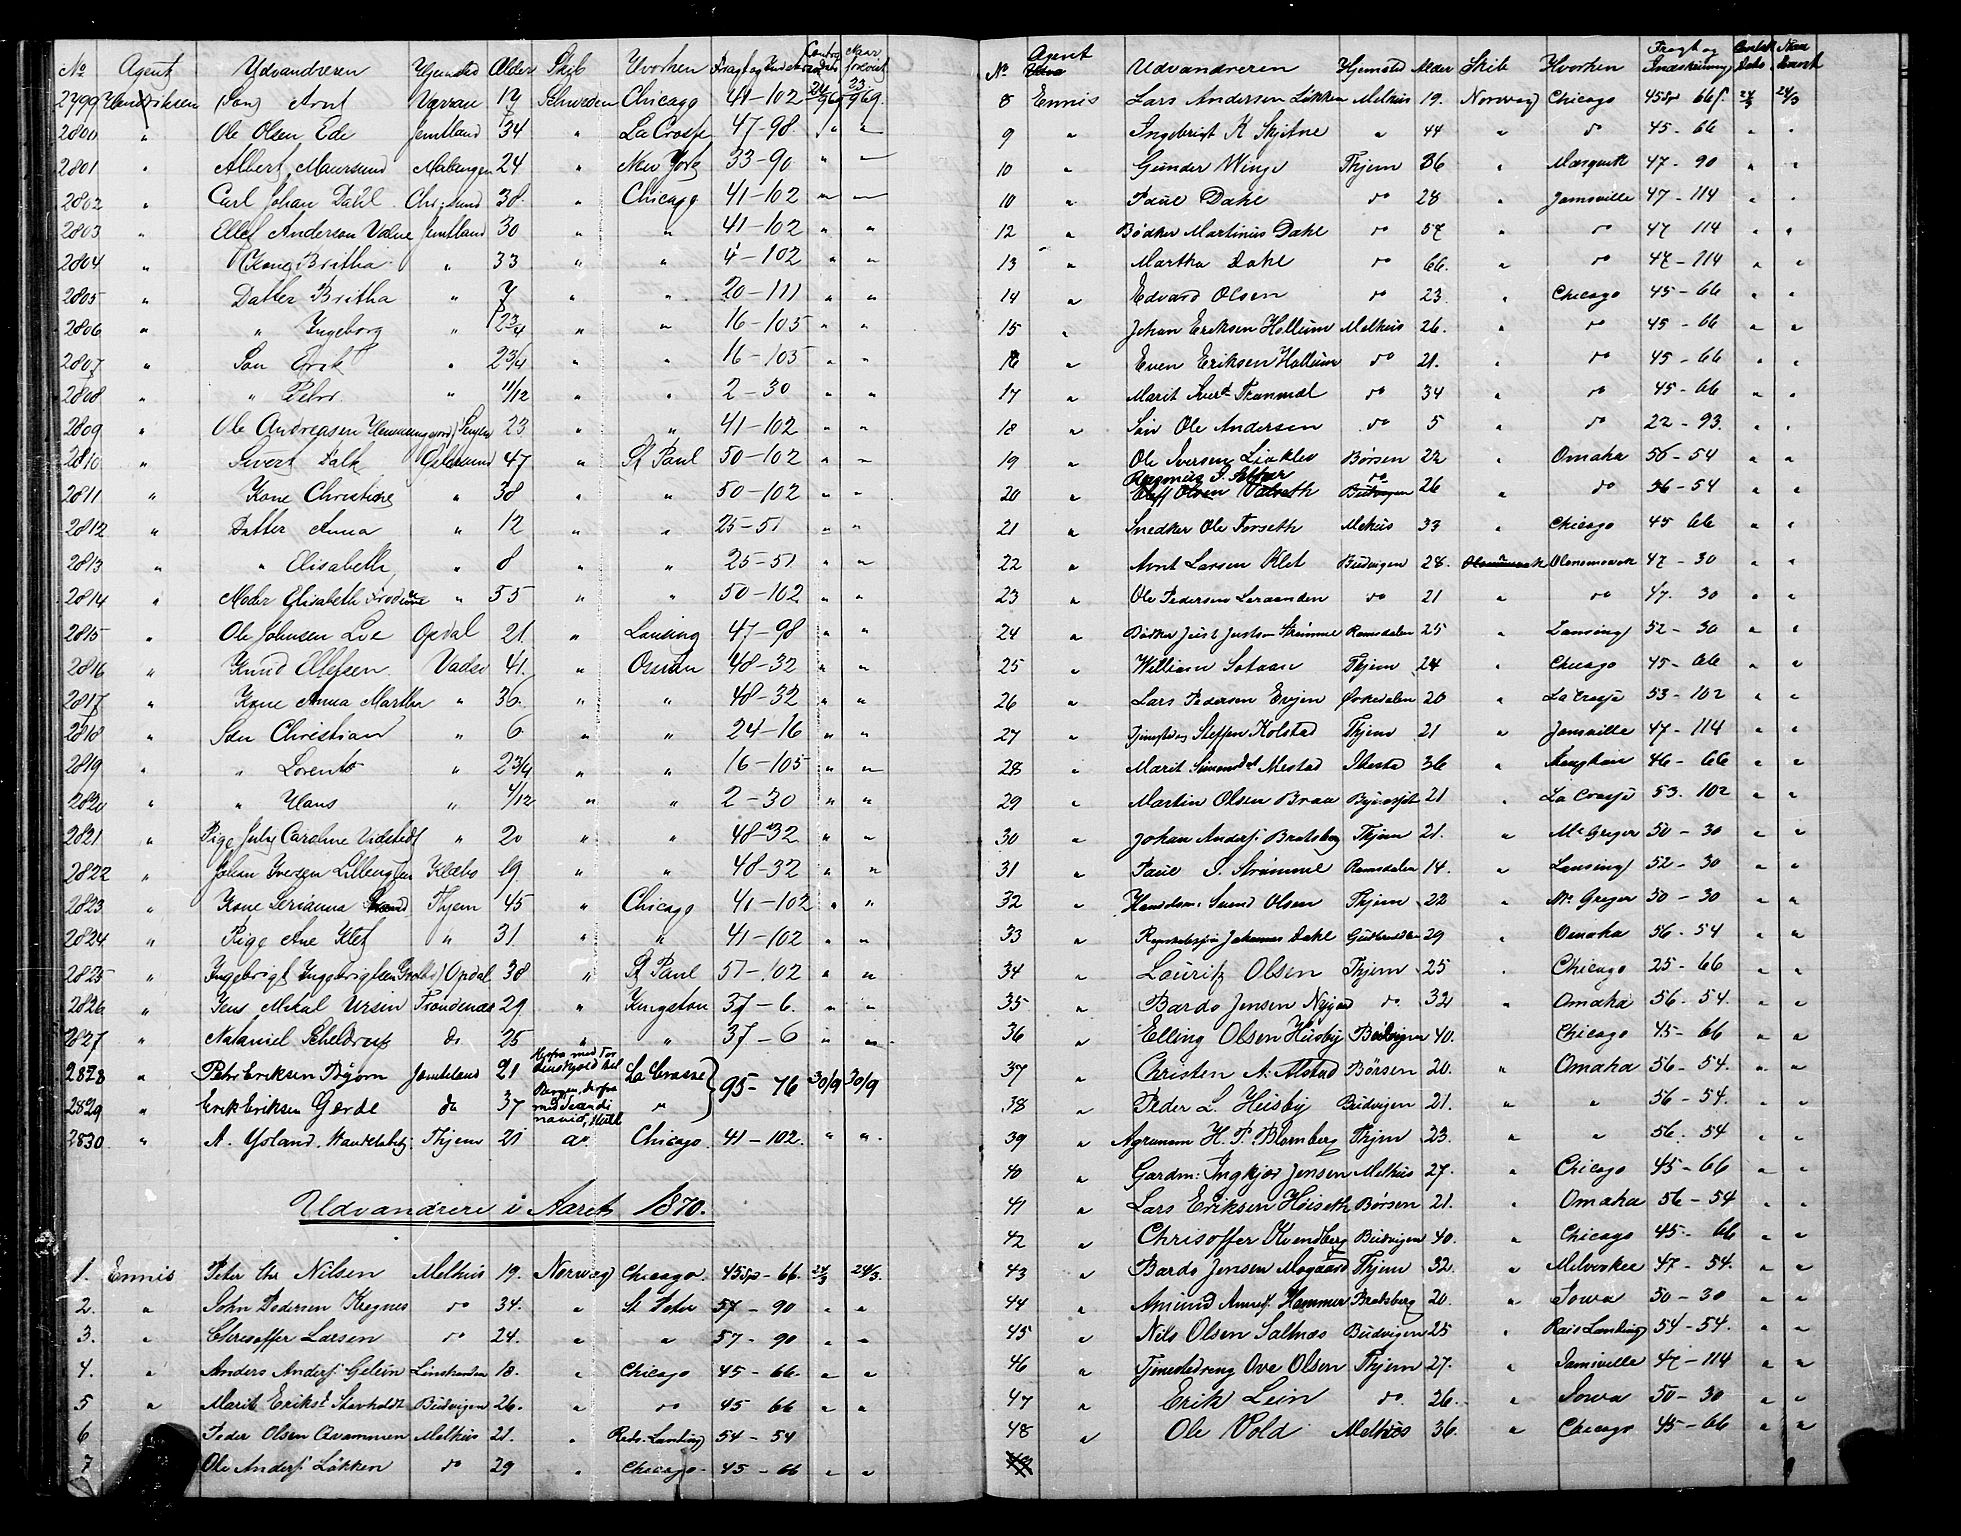 No Agent Udvandreren Hjemsted Alder Skib Hvorhen Fragt og
2799 Hendriksen Søn Arnt Værran 17 Schweden Chicago 41-102
2800 " Ole Olsen Ede Jemtland 34 " La Crosse 47-98 " "
2801 " Albert Maursund Malangen 24 " New York 33-90 " "
2802 " Carl Johan Dahl Chr:sund 38. " Chicago 41-102 " "
2803 " Ellef Anderson Jemtland 30 " " 41-102 " "
2804 " Kone Britha " 33 " " 4-102 " "
2805 " Datter Britha " 7 " " 20-111 " "
2806 " " Ingeborg " " " 16-105 " "
2807 " Søn Erik " 2 3/4 " " 16-105 " "
2808 " " Peter " 11/12 " " 2-30 " "
2809 " Ole Andreasen 23 " " 41-102 " "
2810 " Sivert Dalk 47 " St Paul 50-102 " "
2811 " Kone Christine " 38 " " 50-102 " "
2812 " Datter Anna " 12 " " 25-51 " "
2813 " " Elisabeth " 8 " " 25-51 " "
2814 " Moder Elisabeth " 55 " " 50-102 " "
2815 " Ole Johnsen Loe Opdal 21 " Lansing 47-98 " "
2816 " Knud Ellefsen Vadsø 41. " 48-32 " "
2817 " Kone Anna Martha " 36. " " 48-32 " "
2818 " Søn Christian " 6 " " 24-16 " "
2819 " " Lorents " 2 3/4 " " 16-105 " "
2820 " " Hans " 4/12 " " 2-30 " "
2821 " Pige July Caroline Vidstedt " 20 " " 48-32 " "
2822 " Johan Iversen Klæbo 19 " " 48-32 " "
2823 " Kone Serianna Thjem 45 " Chicago 41-102 " "
2824 " Pige Ane Klef " 31 " " 41-102 " "
2825 " Ingebrigt Ingebrigtsen Opdal 38 " St Paul 51-102 " "
2826 " Jens Mikal Ursin Trondenæs 29 " Kingston 37-6. " "
2827 " Nataniel Scheldrup do 25 " " 37-6 " "
2828 " Petr Eriksen Bjørn Jæmteland 21 La Crosse 95-76 30/9 30/9
2829 " Erik Eriksen Gerde do 37 "
2830 " A. Yoland. Thjem 21 do Chicago 41-102. " "
Udvandrere i Aaret 1870.
1. Ennis Peter Chr Nilsen Melhus 19. Norway Chicago. 45 Sp-66. 24/3 24/3.
2. " John Pedersen Kregnes do 34. " St Peter 57-90 " "
3. " Christoffer Larsen do 24. " " 57-90 " "
4. " Anders Anders. 18. " Chicago 45-66. " "
5 " Marit Eriksd Stavholdt Budvigen 26. " do 45 66 " "
6 " Peder Olsen Qvammen Melhus 21. " Reds-Landing 54-54
7 " Ole Anders. Løkken do 29 " Chicago 45-66 " "
No Agent Udvandreren Hjemsted Alder Skib Hvorhen Fragt og
8 Ennis Lars Andersen Løkken Melhus 19. Norway Chicago 45 Sp 66 s. 24/3 24/3
9 " Ingebrigt K Skjetne " 44 " do 45-66 " "
10 " Gunder Winge Thjem 36 " Marquett 47-90 " "
10 " Paul Dahl do 28 " Jamsville 47-114 " "
12 " Bødker Martinus Dahl do 57 " do 47 114 " "
13 " Martha Dahl do 66. " do 47-114 " "
14 " Edvard Olsen do 23. " Chicago 45-66 " "
15 " Johan Eriksen Hollum Melhus 26. " do 45-66 " "
16 " Even Eriksen Hollum do 21. " do 45-66 " "
17 " Marit Tranmæl do 34 " do 45-66 " "
18 " Søn Ole Andersen do 5 " do 22-93. " "
19 " Ole Iversen Liaklev Børsen 22 " Omaha 56-54 " "
20 " do 26 " do 56-54 " "
21 " Snedker Ole Forseth Melhus 33 " Chicago 45 66 " "
22 " Arnt Larsen Klet Budvigen 28. 47-30 " "
23 " Ole Pedersen do 21 " do 47. 30 " "
24 " Bødker Strømme Romsdalen 25 " Lansing 52-30 " "
25 " William Thjem 24 " Chicago 45-66 " "
26 " Lars Pedersen Evjen Ørkedalen 20 " La Crosse 53-102 " "
27 " Steffen Kolstad Thjem 21 " Jamsville 47-114 " "
28 " Marit Mestad 36 " 46-66 " "
29 " Martin Olsen Braa 21 " La Crosse 53. 102 " "
30 " Johan Anders. Bratsberg Thjem 21. " Mc Gregor 50-30 " "
31 " Paul S. Strømme Romsdalen 14. " Lansing 52-30 " "
32 " Svend Olsen Thjem 22 " Mc Gregor 50-30 " "
33 " Johannes Dahl 29 " Omaha 56-54 " "
34 " Lauritz Olsen Thjem 25 " Chicago 25-66 " "
35 " Bardo Jensen do 32 " Omaha 56-54. " "
36 " Elling Olsen Husby Budvigen 40. Chicago 45-66 " "
37 " Christen A. Alstad Børsen 20. " Omaha 56-54. " "
38 " Peder L. Husby Budvigen 21. " " 56-54. " "
39 " Agronom H. P. Blomberg Thjem 23. " " 56. 54 " "
40 " Gardm: Ingkjør Jensen Melhus 27. " Chicago 45-66 " "
41 " Lars Eriksen Høiseth Børsen 21. " Omaha 56-54 " "
42 " Chrisoffer Kvendberg Budvigen 40. " Chicago 45-66 " "
43 " Bardo Jensen Mogaard Thjem 32. " Milvookee 47-54. " "
44 " Amund Hammer Bratsberg 20. " Iowa 50-30 " "
45 " Nils Olsen Saltnæs Budvigen 25 " Landing 54-54. " "
46 " Tjenestedreng Ove Olsen Thjem 27. " Jamsville 47-114 " "
47 " Erik Lein do. 26. " Iowa 50-30 " "
48 " Ole Vold Melhus 36. " Chicago 45-66 " "